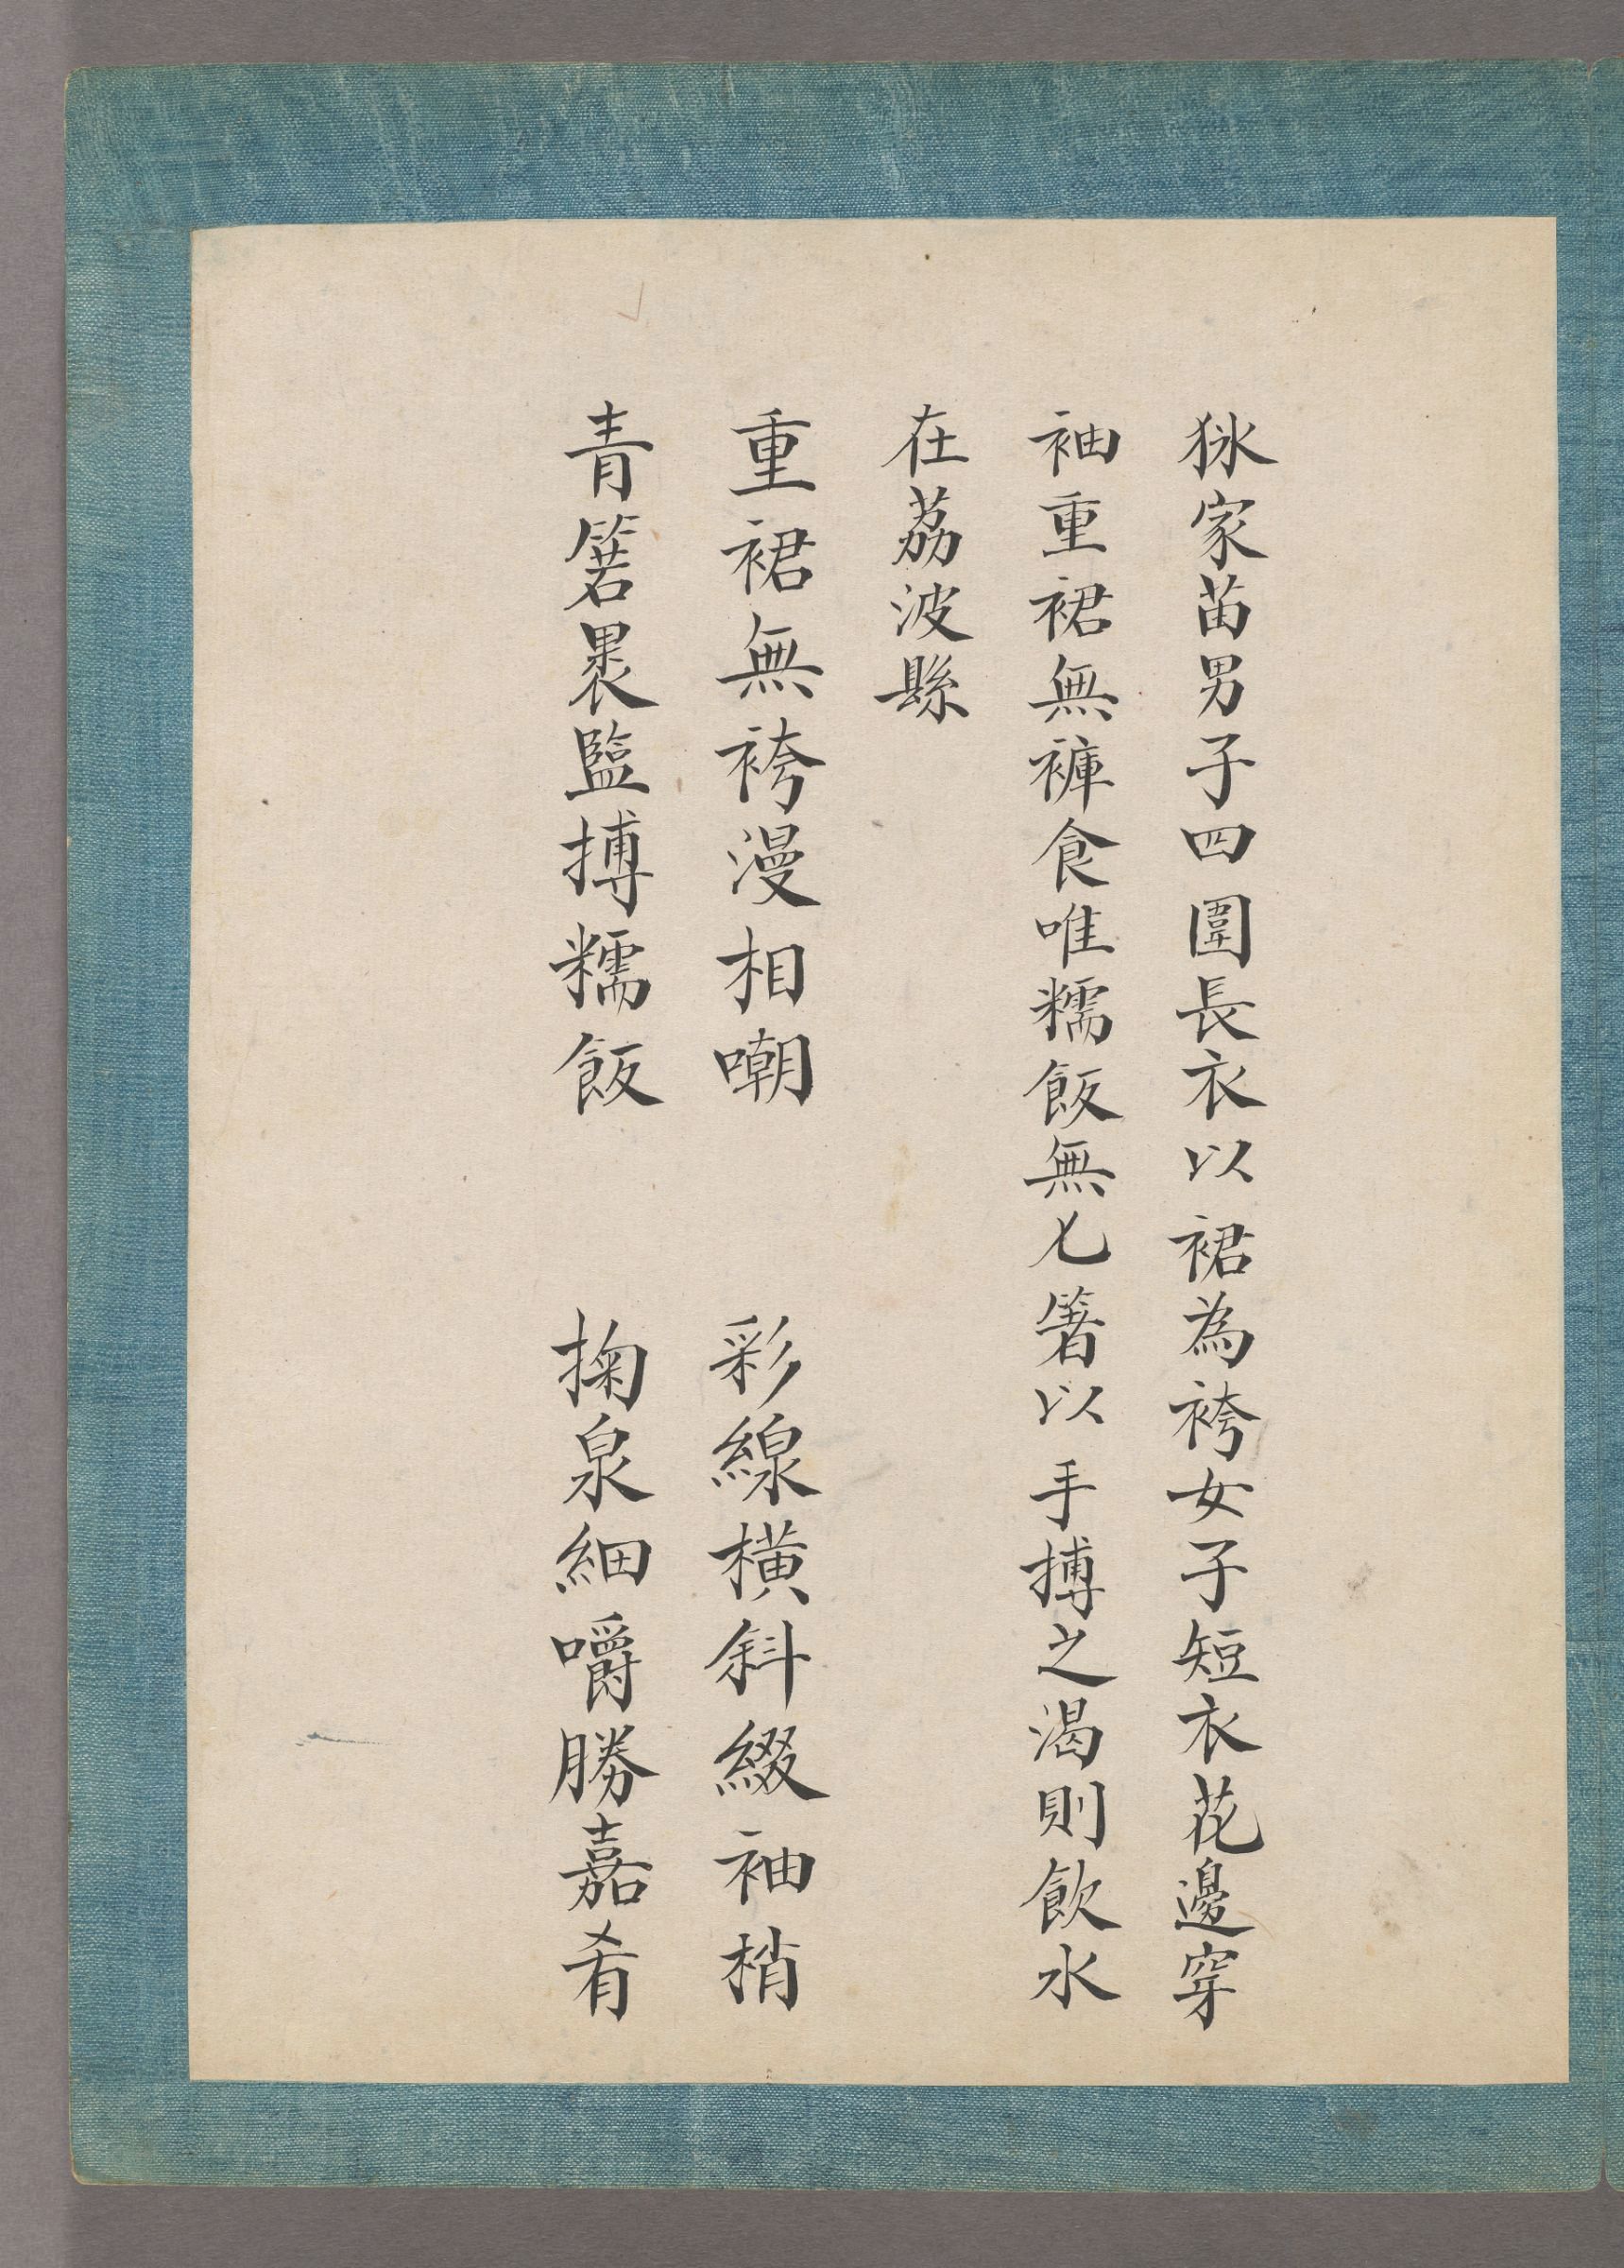 犭永家苗男子四圍長衣以裙為袴女子短衣花邊穿
袖重裙無褲食唯糯飯無匕箸以手摶之渴則飲水
在荔波縣
重裙無袴漫相嘲　彩線橫斜綴袖梢
青箬裹鹽摶糯飯　掬泉細嚼勝嘉肴